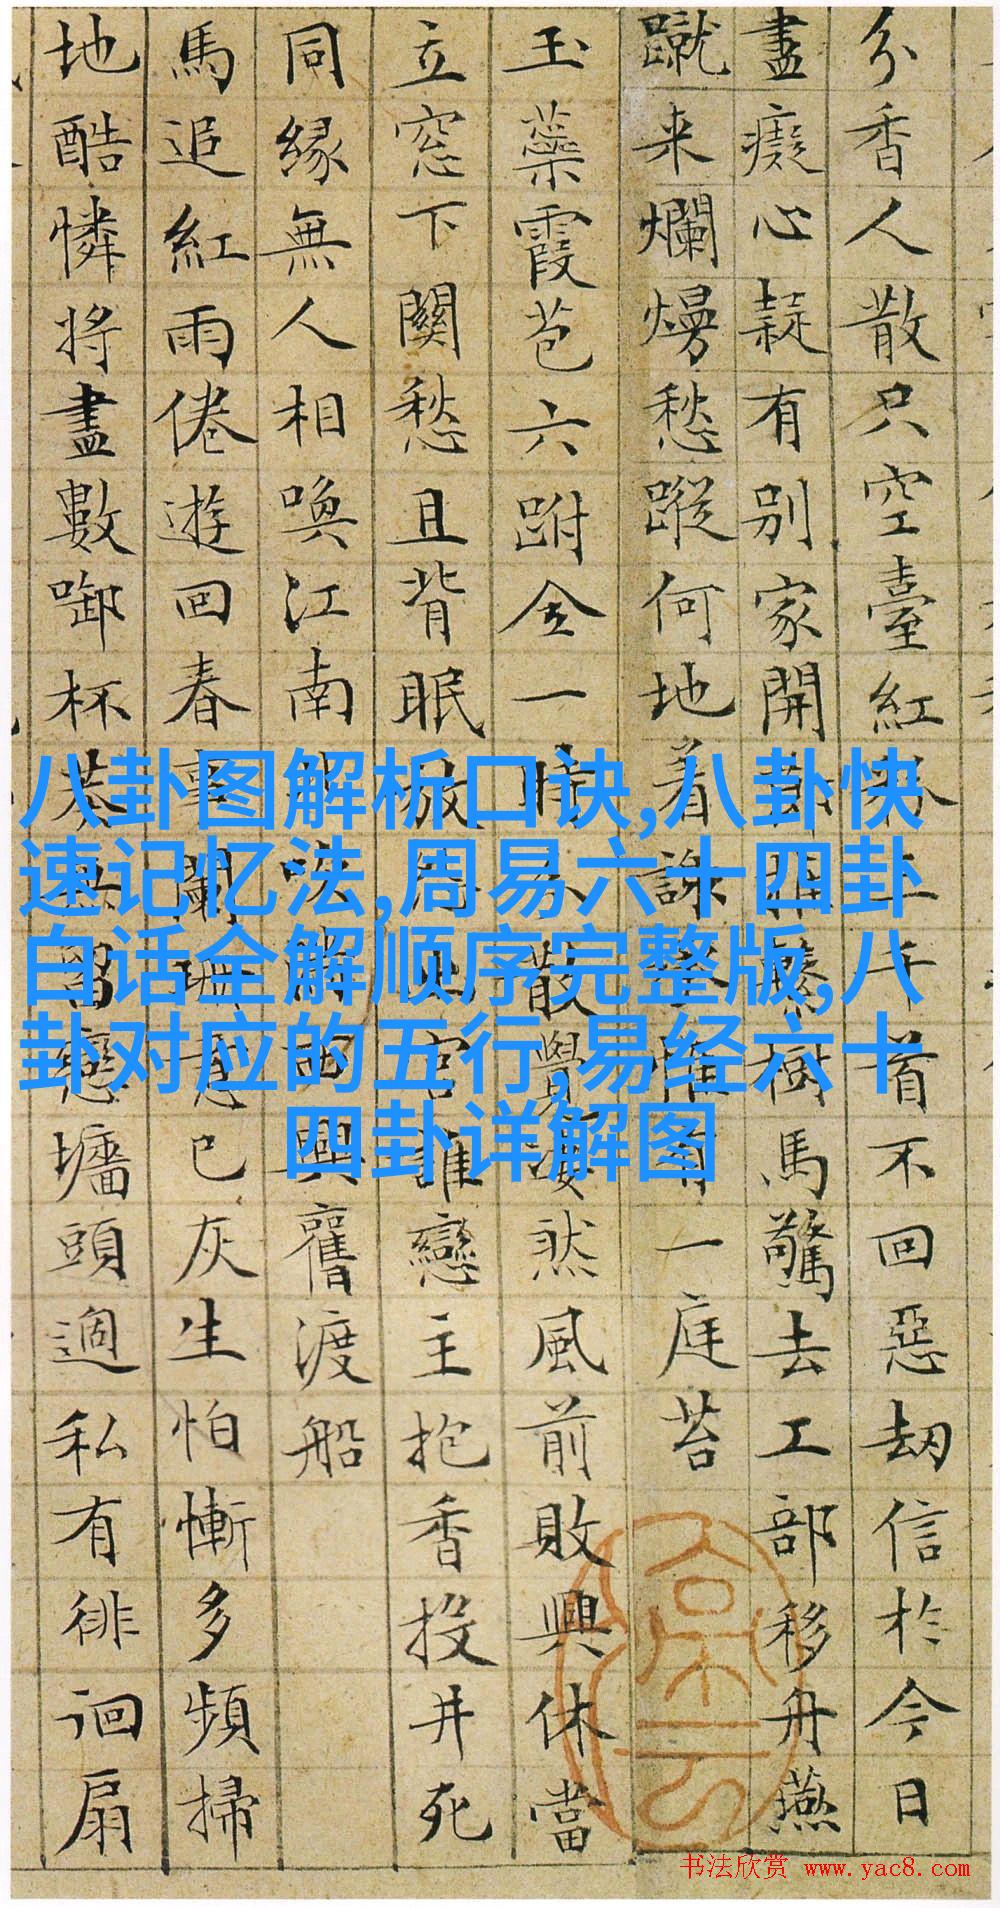 分香人散只空臺紅粉三千首不回惡劫信於今日
盡癡心疑有別家開繫樹馬驚去工部移舟燕
蹴来爛熳愁蹤何地着餘惟有一庭苔
玉蘂霞苞六跗全一散覺凄然風前敗興休當
立窓下關愁且背眠放官誰戀主抱香投井死
同縁無人相喚江南興舊渡船
馬追紅雨倦遊回春事闌珊意已灰生怕慚多頻掃
地酷憐將盡數啣杯留戀墻頭過私有徘徊扇
八卦图解析口诀,八卦快
速记忆法,周易六十四卦
白话全解顺序完整版,八
卦对应的五行,易经六十
四卦详解图
书法欣赏 www.yac8.com